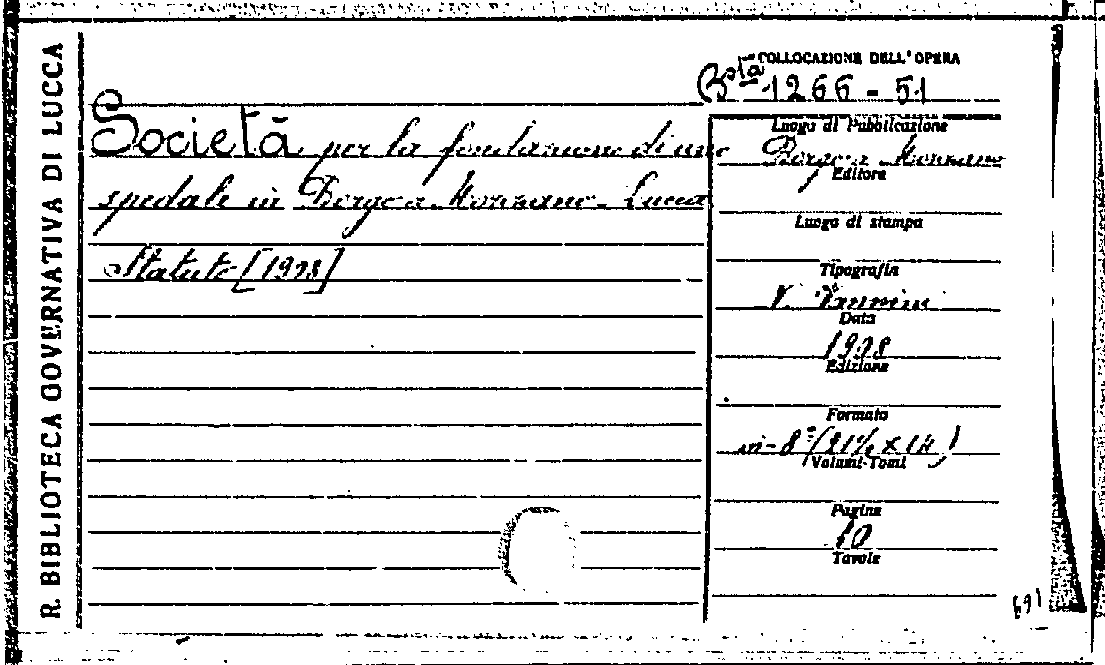 R. BIBLIOTECA GOVERNATIVA DI LUCCA
COLLOCAZIONE DELL'OPERA
Bsta 1266 - 51
Società per la fondazione di uno
spedale in Borgo a Mozzano - Lucca
Statuto [1908]
Luogo di Pubblicazione
Borgo a Mozzano
Editore
Luogo di stampa
Tipografia
Vannini
Data
1908
Edizione
Formato
in-8° (21½ x 14)
Volumi-Tomi
Pagine
10
Tavole
691